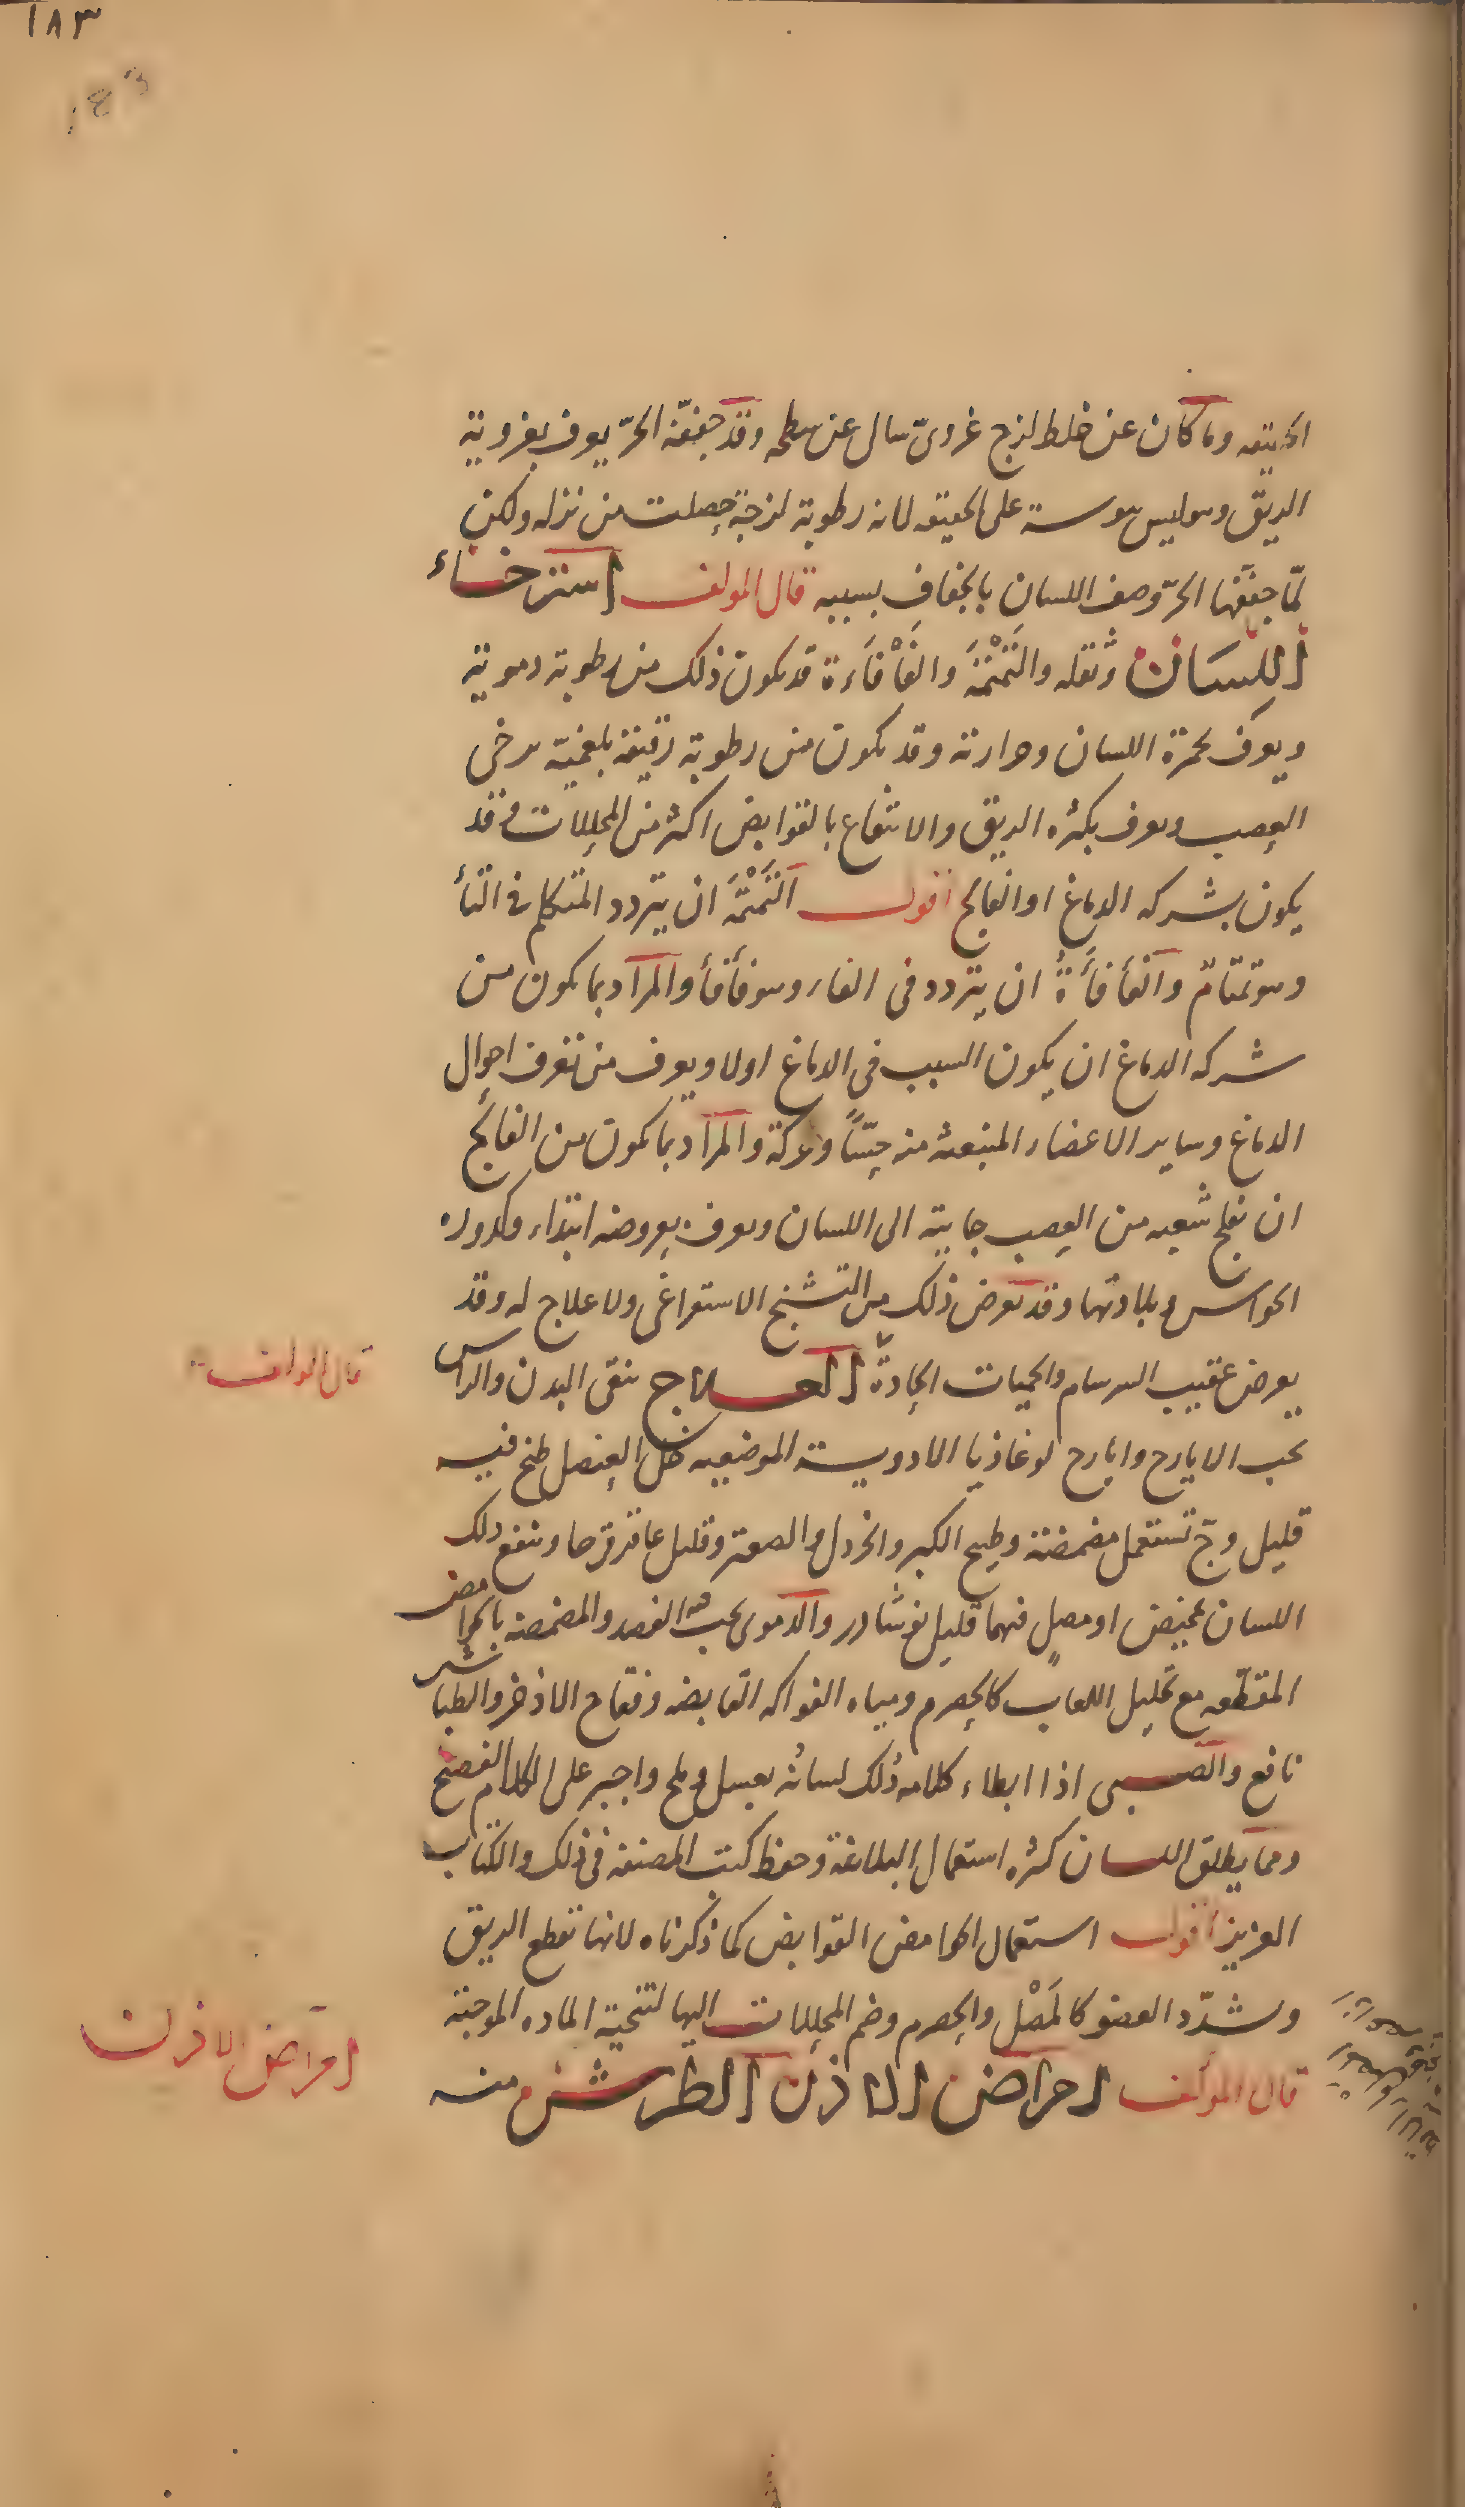 ١٨٣
١٨٣
الحقيقه وما كان عن خلط لزج غروىّ سال عن سطحه وقد جففّه الحرّ يعرف بغروية
الريق وهو ليس يبوسة على الحقيقه لانه رطوبة لزجة حصلت من نزله ولكن
لمّا جففَّها الحرّ وصف اللسان بالجفافِ بسببه قال المولف استرخاء
اللسَان وثقله والتَمْتَمَة والفَأْفَاَءة قد يكون ذلك من رطوبة دموية
ويعرف بحمرة اللسان وحرارته وقد يكون من رطوبة رقيقة بلغميّة يرخى
العصب ويعرف بكثره الريق والانتفاع بالقوابض اكثر من المحللات وقد
يكون بشركه الدماغ او الفالج اقول التَمْتَمَة ان يتردد المتكلم فى التأ
وهو تمتامٌ والفأفأَةُ ان يتردد فى الفاء وهو فأفأ والمراد بما يكون من
شركه الدماغ ان يكون السبب فى الدماغ اولا ويعرف من تعرف احوال
الدماغ وساير الاعضاء المنبعثه منه حِسّاً وحركة والمراد بما يكون من الفالج
ان يفلج شعبه من العصب جايية الى اللسان ويعرف بعروضه ابتداء وكدوره
الحواس وبلادتها وقد يعرض ذلك من التشنج الاستفراغى ولا علاج له وقد
يعرض عقيب السرسام والحميات الحادّة العلاج ينقى البدن والراس
قال المولف
بحب الايارج وايارج لوغاذيا الادوية الموضعيه خل العنصل طبخ فيه
قليل وج تستعمل مضمضة وطبيخ الكبر والخردل والصعتر وقليل عاقرقرحا وينفع دلك
اللسان بمخيض او مصلٍ فيهما قليل نوشادر والدموى يجب فيه الفصد والمضمضه بالحوامض
المقطعه مع تحليل اللعاب كالحصرم ومياه الفواكه القابضه وفقاح الاذخر والطباشير
نافع والصبى اذا ابطاء كلامه دُلك لسانُه بعسل وملح واجبر على الكلام الفصيح
ومما يطلق اللسان كثره استعمال البلاغة وحفظ كتب المصنفه فى ذلك والكتاب
العزيز اقول استعمال الحوامض القوابض كما ذكرناه لانها تقطع الريق
وتشدّد العضو كالمَصْل والحصرم وضم المحللات اليها لتنحية الماده الموجبة
قال المولف امراض الاذن الطرش منه
امراض الاذن